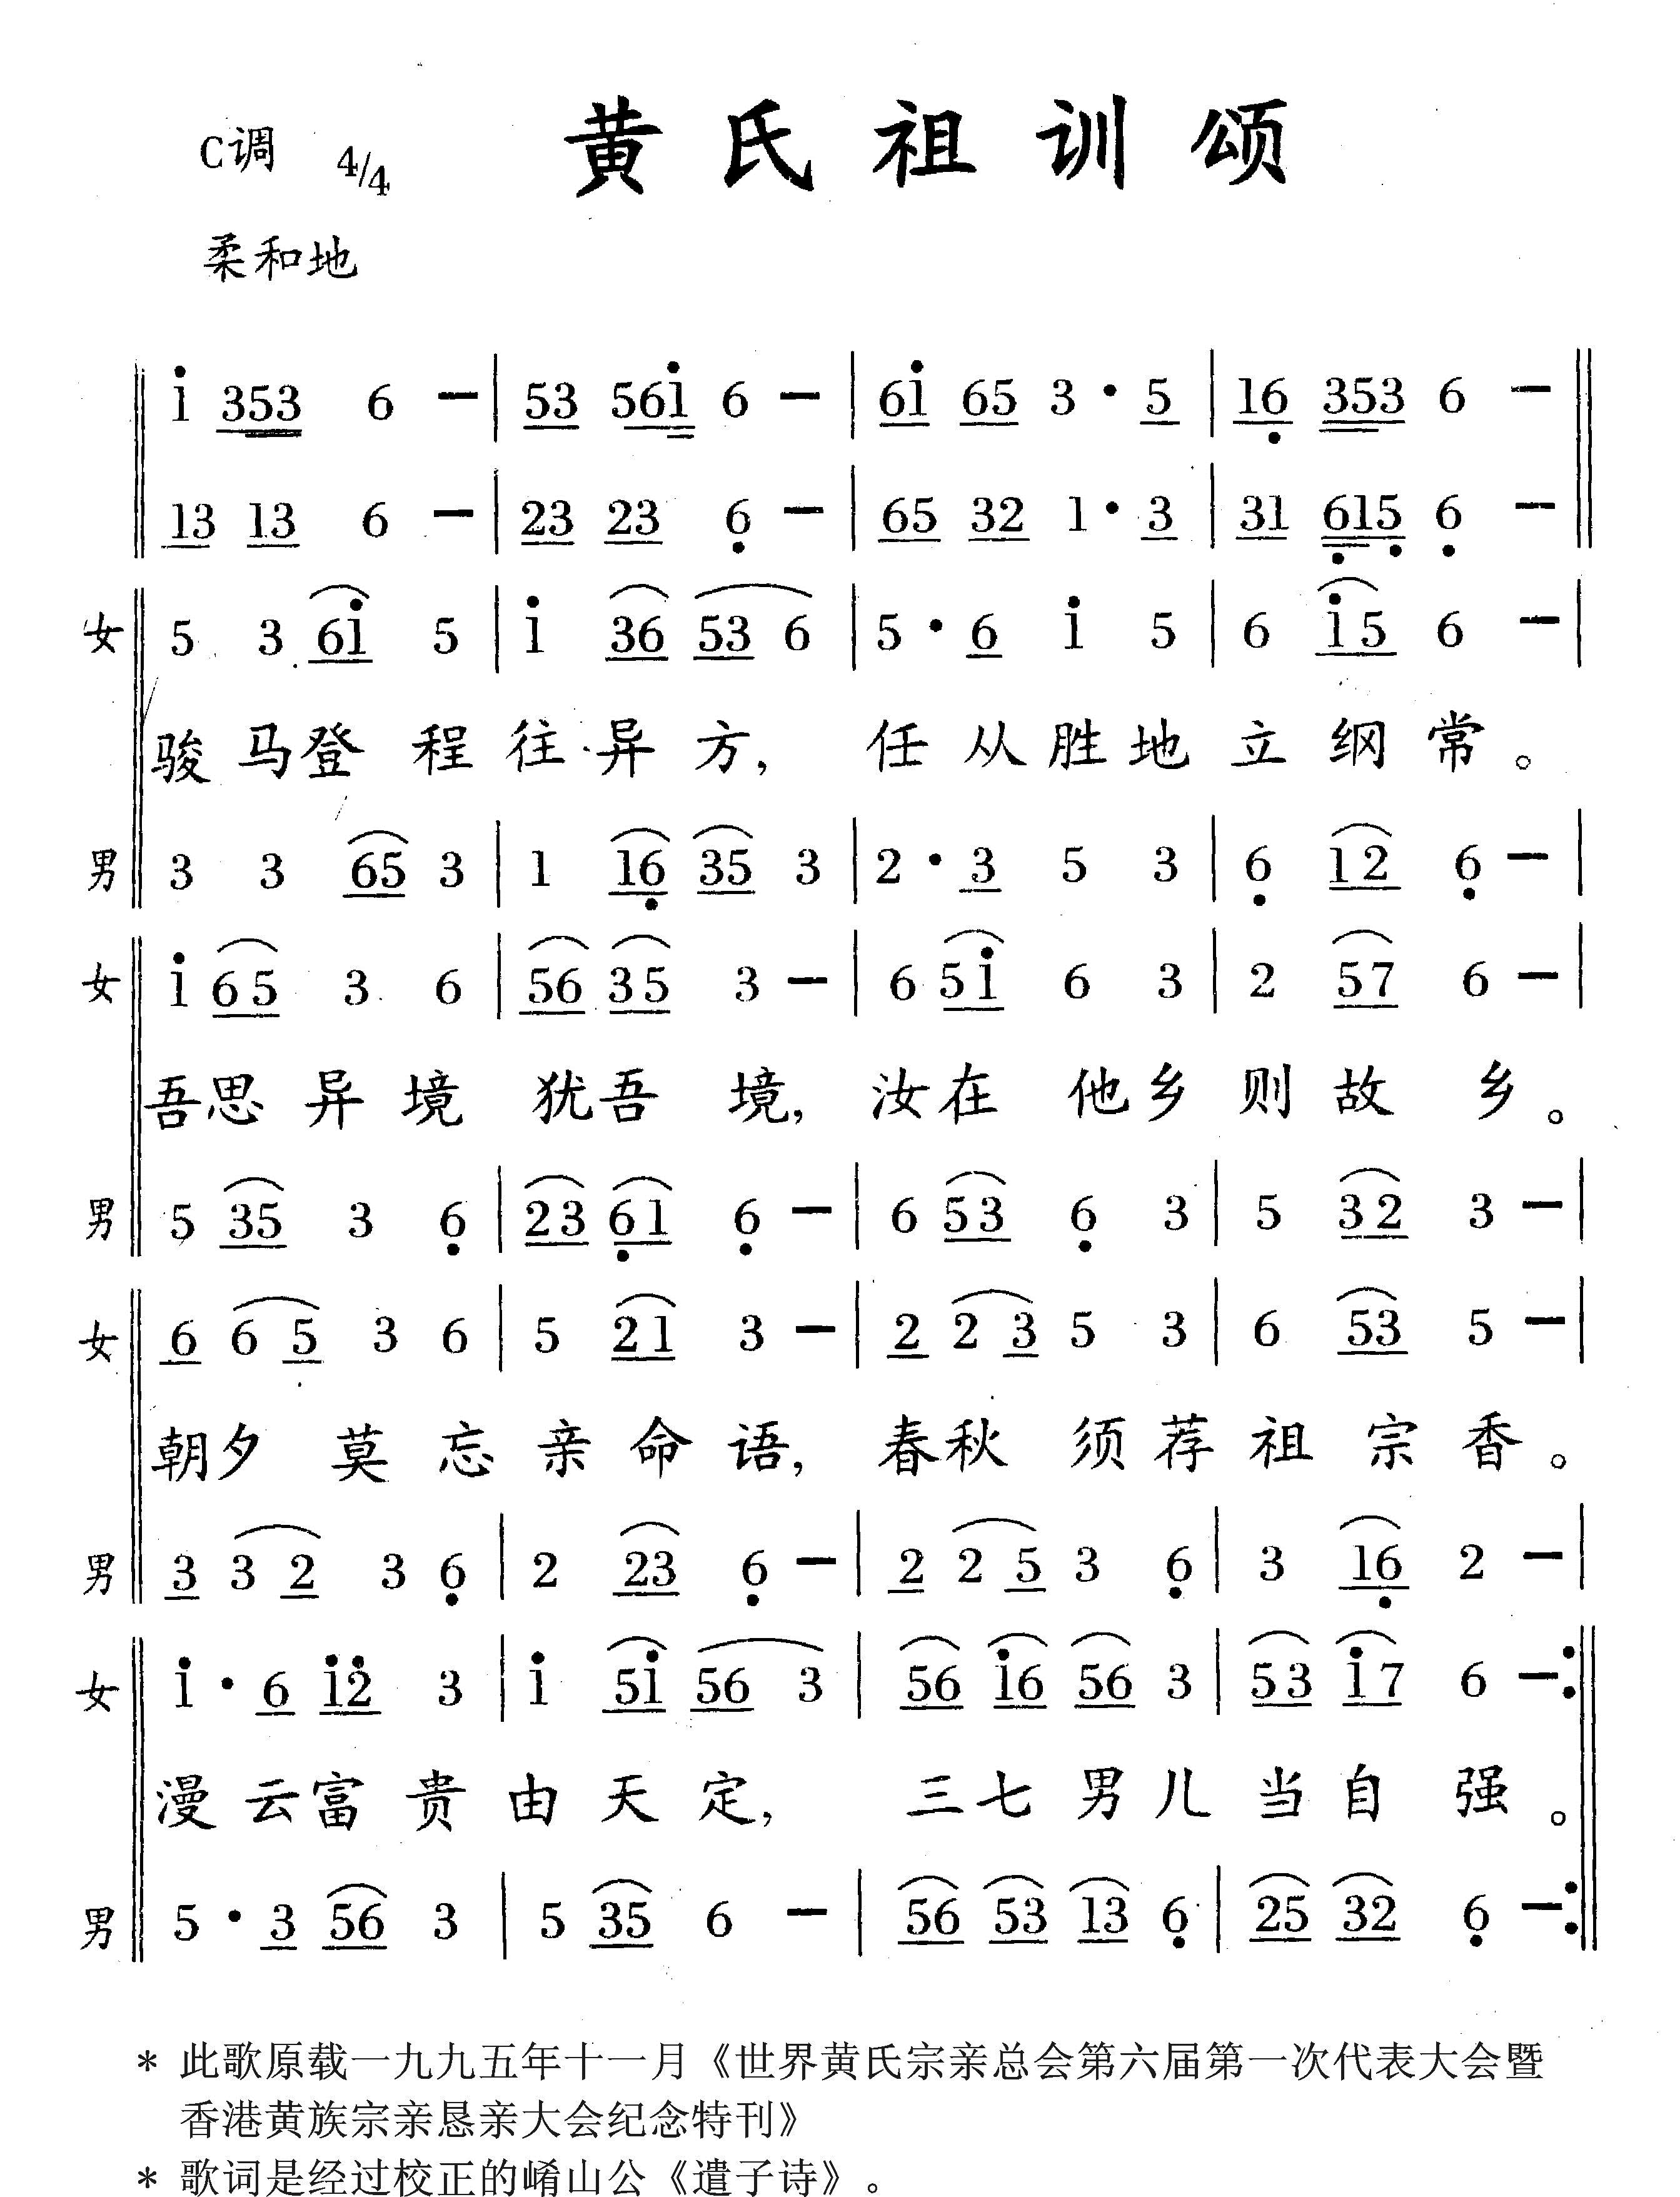 黄氏祖训颂
C调 4/4
柔和地
i 353 6 — | 53 56i 6 — | 6i 65 3 · 5 | 16 353 6 —
13 13 6 — | 23 23 6 — | 65 32 1 · 3 | 31 615 6 —
女 5 3 6i 5 | i 36 53 6 | 5 · 6 i 5 | 6 i5 6 — |
骏马登程往异方，任从胜地立纲常。
男 3 3 65 3 | 1 16 35 3 | 2 · 3 5 3 | 6 12 6 — |
女 i 65 3 6 | 56 35 3 — | 6 5i 6 3 | 2 57 6 — |
吾思异境犹吾境，汝在他乡则故乡。
男 5 35 3 6 | 23 61 6 — | 6 53 6 3 | 5 32 3 — |
女 6 6 5 3 6 | 5 21 3 — | 2 2 3 5 3 | 6 53 5 — |
朝夕莫忘亲命语，春秋须荐祖宗香。
男 3 3 2 3 6 | 2 23 6 — | 2 2 5 3 6 | 3 16 2 — |
女 i · 6 i2 3 | i 5i 56 3 | 56 i6 56 3 | 53 i7 6 — :
漫云富贵由天定，三七男儿当自强。
男 5 · 3 56 3 | 5 35 6 — | 56 53 13 6 | 25 32 6 — :
* 此歌原载一九九五年十一月《世界黄氏宗亲总会第六届第一次代表大会暨
香港黄族宗亲恳亲大会纪念特刊》
* 歌词是经过校正的峭山公《遣子诗》。